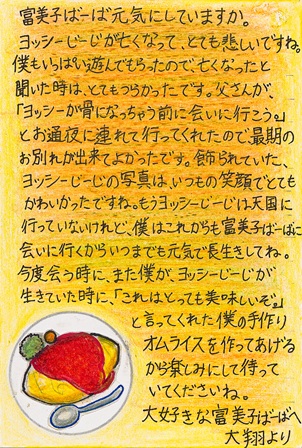 富美子ばーば元気にしていますか。
ヨッシーじーじが亡くなって、とても悲しいですね。
僕もいっぱい遊んでもらったので亡くなったと
聞いた時は、とてもつらかったです。父さんが、
「ヨッシーが骨になっちゃう前に会いに行こう。」
とお通夜に連れて行ってくれたので、最期の
お別れが出来てよかったです。飾られていた、
ヨッシーじーじの写真は、いつもの笑顔でとても
かわいかったですね。もうヨッシーじーじは天国に
行っていないけれど、僕はこれからも富美子ばーばに
会いに行くからいつまでも元気で長生きしてね。
今度会う時に、また僕が、ヨッシーじーじが
生きていた時に、「これはとっても美味しいぞ。」
と言ってくれた僕の手作り
オムライスを作ってあげる
から楽しみにして待って
いてくださいね。
大好きな富美子ばーばへ
大翔より